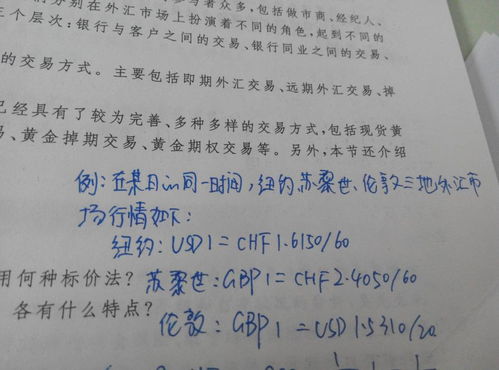 分别在外汇市场上扮演着不同的角色，起到不同的
三个层次：银行与客户之间的交易、银行同业之间的交易、
的交易方式。主要包括即期外汇交易、远期外汇交易、掉
已经具有了较为完善、多种多样的交易方式，包括现货黄
易、黄金掉期交易、黄金期权交易等。另外，本节还介绍
例：在某日的同一时间，纽约、苏黎世、伦敦三地外汇市
场行情如下：
纽约：USD1=CHF1.6150/60
用何种标价法？
苏黎世：GBP1=CHF2.4050/60
各有什么特点？
伦敦：GBP1=USD1.5310/20